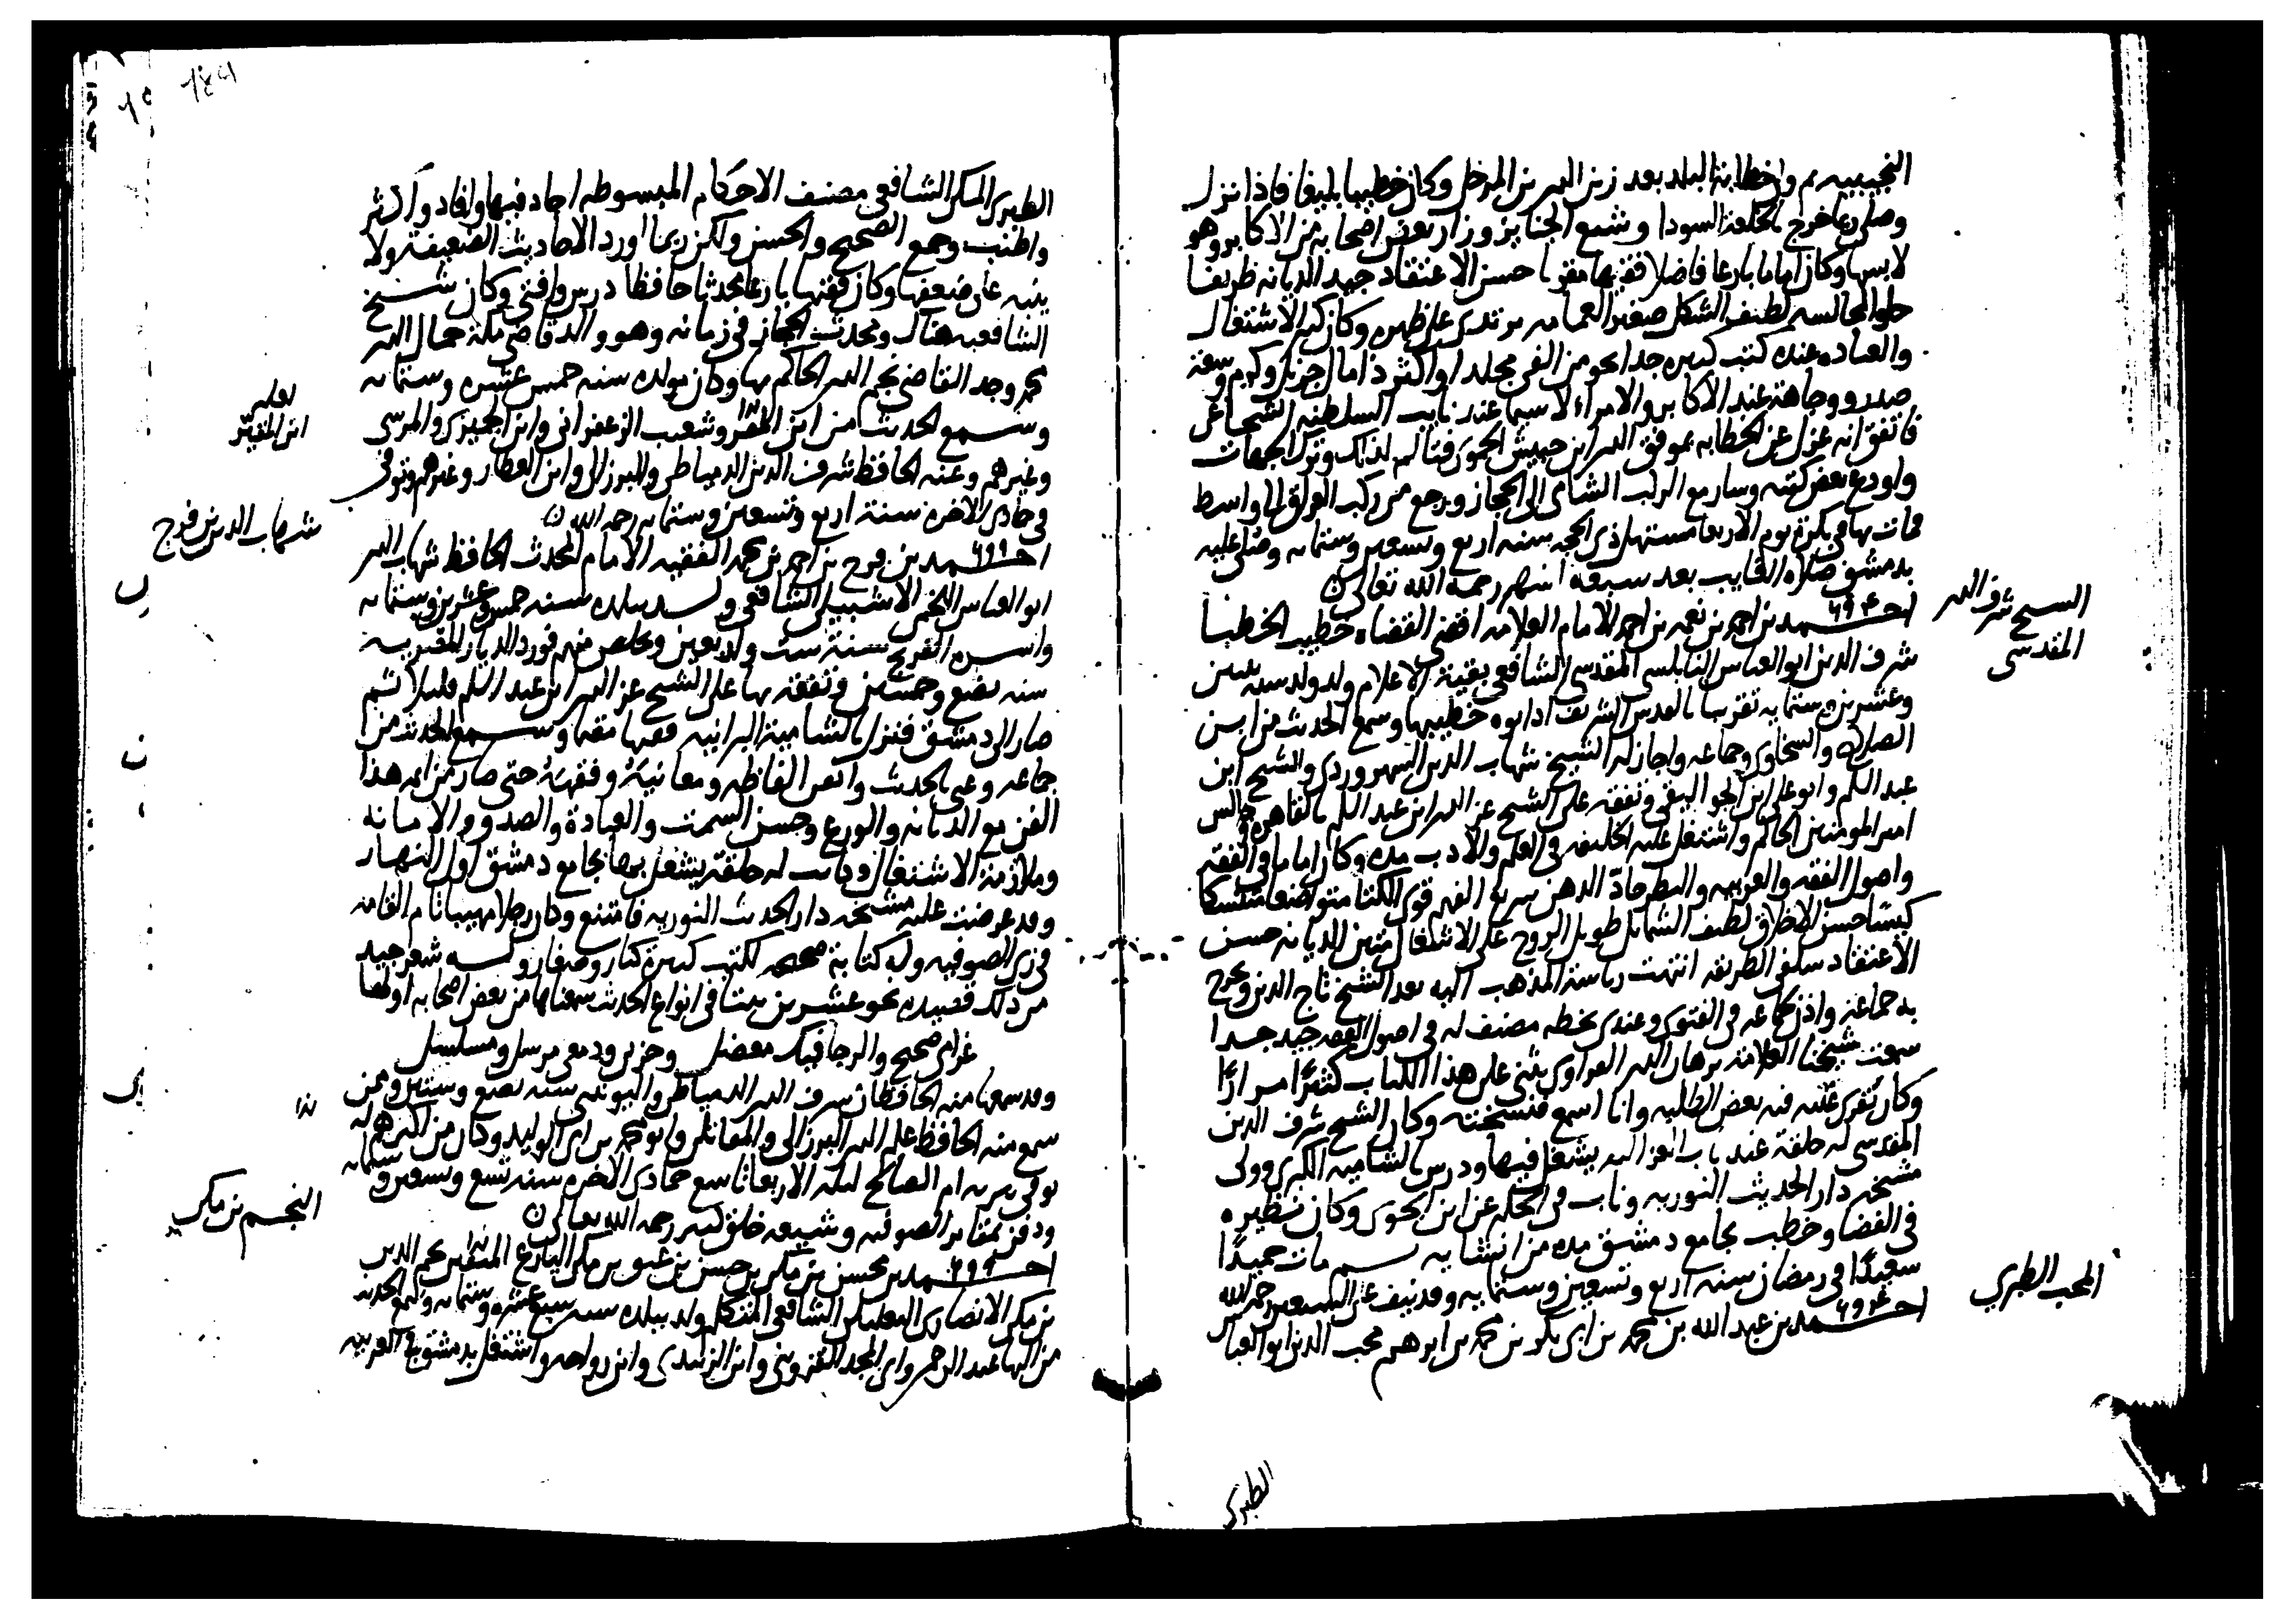 النجيبيه ثم ولى خطابة البلد بعد زين الدين بن المرحل وكان خطيبا بليغا فاذا نزل
وصلى ربما خرج بالخلعة السودا وشيع الجنايز وزار بعض اصحابه من الاكابر وهو
لابسها وكان اماما بارعا فاضلا فقيها مقريا حسن الاعتقاد جيد الديانه ظريفا
حلو المجالسه لطيف الشكل صغير العمامه يرتدى على ظهره وكان كثير الاشتغال
والعباده عنده كتب كثيره جدا نحو من الفى مجلد او اكثر ذا مال جزيل وكرم وسعة
صدر ووجاهة عند الاكابر والامراء لا سيما عند نايب السلطنه الشجاعى
فاتفق انه عزل عن الخطابه بموفق الدين ابن حبيش الحموى فتالم لذلك وترك الجهات
واودع بعض كتبه وسار مع الركب الشامى الى الحجاز ورجع مع ركب العراق الى واسط
فمات بها فى بكرة يوم الاربعا مستهل ذى الحجه سنه اربع وتسعين وستمايه وصلى عليه
بدمشق صلاة الغايب بعد سبعة اشهر رحمه الله تعالى
السيح شرف الدين
المقدسى
احمد بن احمد بن نعمه بن احمد الامام العلامه اقضى القضاه خطيب الخطبا
شرف الدين ابو العباس النابلسى المقدسى الشافعى بقية الاعلام ولد سنه ثنتين
وعشرين وستمايه تقريبا بالقدس الشريف اذ ابوه خطيبها وسمع الحديث من ابن
الصلاح والسخاوى وجماعه واجاز له الشيخ شهاب الدين السهروردى والشيخ ابن
عبد السلم وابو على ابن الجواليقى وتفقه على الشيخ عز الدين ابن عبد السلم بالقاهره وجالس
امير المومنين الحاكم واشتغل عليه الخليفه فى العلم والادب مده وكان اماما فى الفقه
واصول الفقه والعربيه والنظر حاد الذهن سريع الفهم قوى الكتابه متواضعا متنسكا
كيسا حسن الاخلاق لطيف الشمايل طويل الروح على الاشتغال متين الديانه حسن
الاعتقاد سلفى الطريقه انتهت رياسة المذهب اليه بعد الشيخ تاج الدين وتخرج
به جماعه واذن لجماعه فى الفتوى وعندى بخطه مصنف له فى اصول الفقه جيد جدا
سمعت شيخنا العلامه برهان الدين الفزاوى يثنى على هذا الكتاب كثيرا مرارا
وكان يقرى عليه فيه بعض الطلبه وانا اسمع فنسخته وكان الشيخ شرف الدين
المقدسى له حلقة عند باب الغزاليه يشتغل فيها ودرس بالشاميه الكبرى وولى
مشيخه دار الحديث النوريه وناب فى الحكم عن ابن الخوى وكان نظيره
فى القضا وخطب بجامع دمشق مده من انشايه ثم مات حميدا
سعيدا فى رمضان سنه اربع وتسعين وستمايه وقد نيف على السبعين رحمه الله
المحب الطبري
احمد بن عبد الله بن محمد بن ابى بكر بن محمد بن ابرهيم محب الدين ابو العباس
الطبري
الطبرى المكى الشافعى مصنف الاحكام المبسوطه اجاد فيها وافاد واكثر
واطنب وجمع الصحيح والحسن ولكن ربما اورد الاحاديث الضعيفة ولا
ينبه على ضعفها وكان فقيها بارعا محدثا حافظا درس وافتى وكان شيخ
الشافعيه هناك ومحدث الحجاز فى زمانه وهو والد قاضى مكة جمال الدين
محمد وجد القاضى نجم الدين الحاكم بها وكان مولده سنه خمس عشره وستمايه
لعله
ابن المقير
وسمع الحديث من ابن المقر وشعيب الزعفرانى وابن الجميزى والمرسى
وغيرهم وعنه الحافظ شرف الدين الدمياطى والبرزالى وابن العطار وغيرهم وتوفى
فى جمادى الاخره سنة اربع وتسعين وستمايه رحمه الله
شهاب الدين بن فرج
احمد بن فرح بن احمد بن محمد الفقيه الامام المحدث الحافظ شهاب الدين
ابو العباس اللخمى الاشبيلى الشافعى ولد ببلده سنه خمس وعشرين وستمايه
واسره الفرنج سنة ست واربعين وتخلص منهم فورد الديار المصريه
سنه بضع وخمسين وتفقه بها على الشيخ عز الدين ابن عبد السلم قليلا ثم
صار الى دمشق فنزل بالشامية البرانيه فقيها مقيما وسمع الحديث من
جماعه وعنى بالحديث واتقن الفاظه ومعانيه وفقهه حتى صار من ايمه هذا
الفن مع الديانه والورع وحسن السمت والعبادة والصدق والامانه
وملازمة الاشتغال وكانت له حلقة يشتغل بها بجامع دمشق اول النهار
وقد عرضت عليه مشيخه دار الحديث النوريه فامتنع وكان رجلا مهيبا تام القامه
فى زى الصوفيه وله كتابة صحيحه لكتب كثيرة كبار وصغار وله شعر جيد
من ذلك قصيده نحو عشرين بيتا فى انواع الحديث سمعناها من بعض اصحابه اولها
غرامى صحيح والرجا فيك معضل وحزنى ودمعى مرسل ومسلسل
وقد سمعها منه الحافظان شرف الدين الدمياطى واليونينى سنه بضع وستين وممن
سمع منه الحافظ علم الدين البرزالى والمقاتلى وابو محمد بن ابى الوليد وكان من اكبرهم له
توفى بتربه ام الصالح ليله الاربعا تاسع جمادى الاخره سنه تسع وتسعين وستمايه
ودفن بمقابر الصوفيه وشيعه خلق كثير رحمه الله تعالى
النجم بن مكى
احمد بن محسن بن مكى بن حسن بن عتيق بن مكى البارع المتفنن نجم الدين
بن مكى الانصارى البعلبكى الشافعى المتكلم ولد ببلده سنه سبع عشره وستمايه وسمع الحديث
من البها عبد الرحمن وابى المجد القزوينى وابن الزبيدى وابن رواحه واشتغل بدمشق فى العربيه